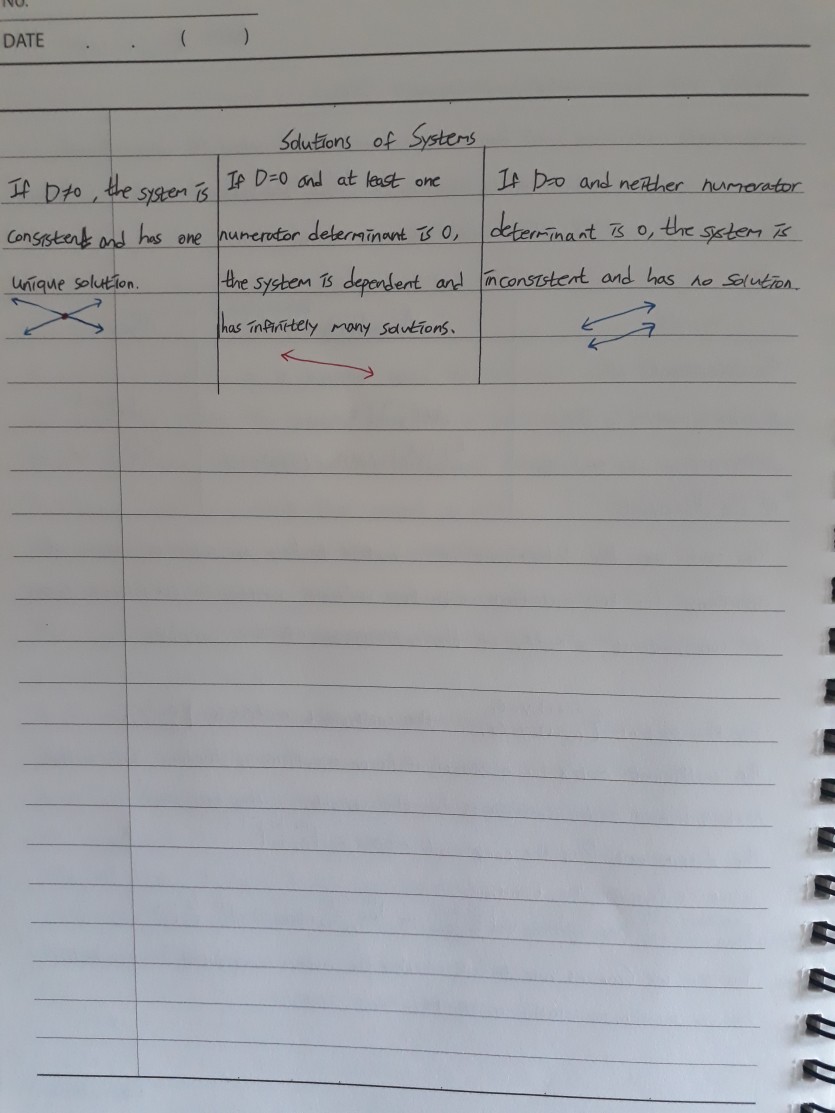 NO.
DATE . . ( )
Solutions of Systems
If D≠0, the system is
consistent and has one
unique solution.
If D=0 and at least one
numerator determinant is 0,
the system is dependent and
has infinitely many solutions.
If D=0 and neither numerator
determinant is 0, the system is
inconsistent and has no solution.